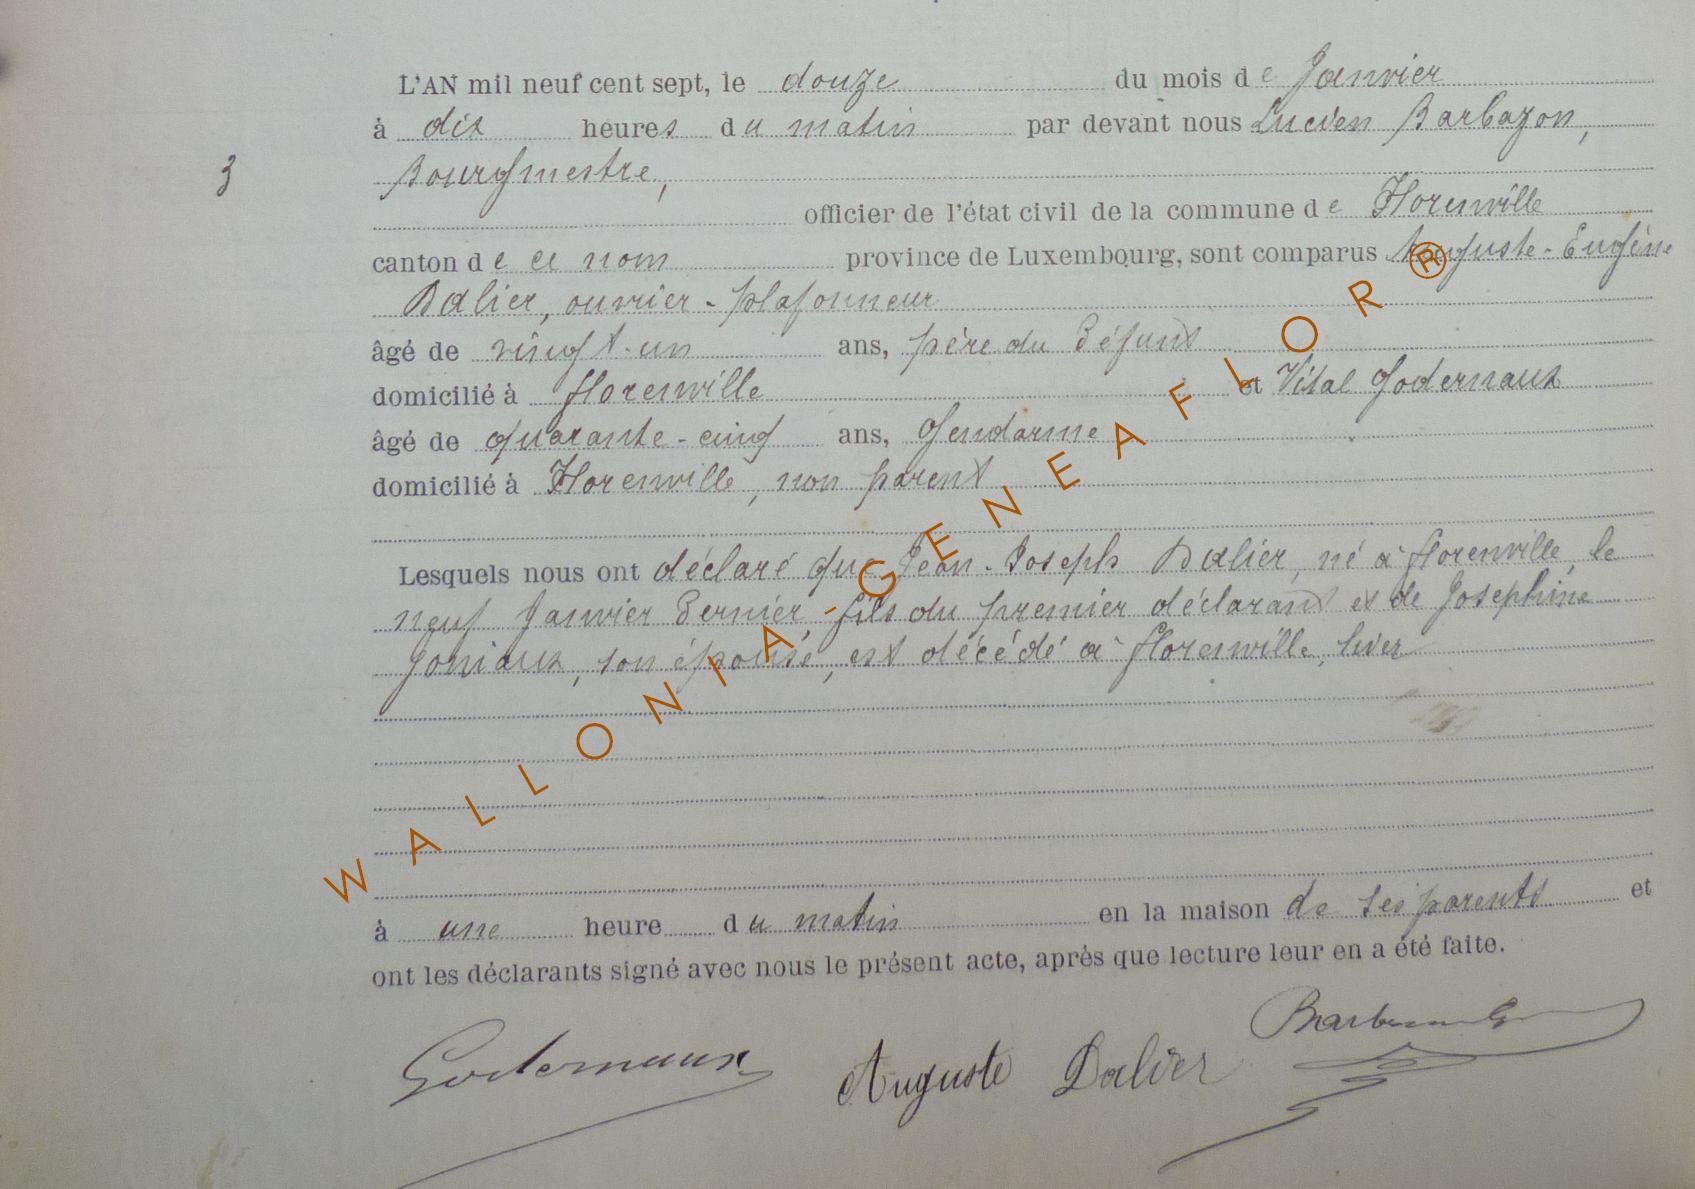 L'AN mil neuf cent sept, le douze du mois de Janvier
à dix heures du matin par devant nous Lucien Barbazon,
3
Bourgmestre,
officier de l'état civil de la commune de Florenville
canton de ce nom province de Luxembourg, sont comparus Auguste-Eugène
Dalier, ouvrier-plafonneur
âgé de vingt-un ans, père du défunt
domicilié à florenville et Vital Godernaux
âgé de quarante-cinq ans, Gendarme
domicilié à Florenville, non parent
Lesquels nous ont déclaré que Jean-Joseph Dalier, né à florenville, le
neuf Janvier dernier, fils du premier déclarant et de Josephine
Goniaux, son épouse, est décédé à florenville, hier
à une heure du matin en la maison de ses parents et
ont les déclarants signé avec nous le présent acte, après que lecture leur en a été faite.
Godernaux Auguste Dalier
WALLONIA-GENEAFLOR®